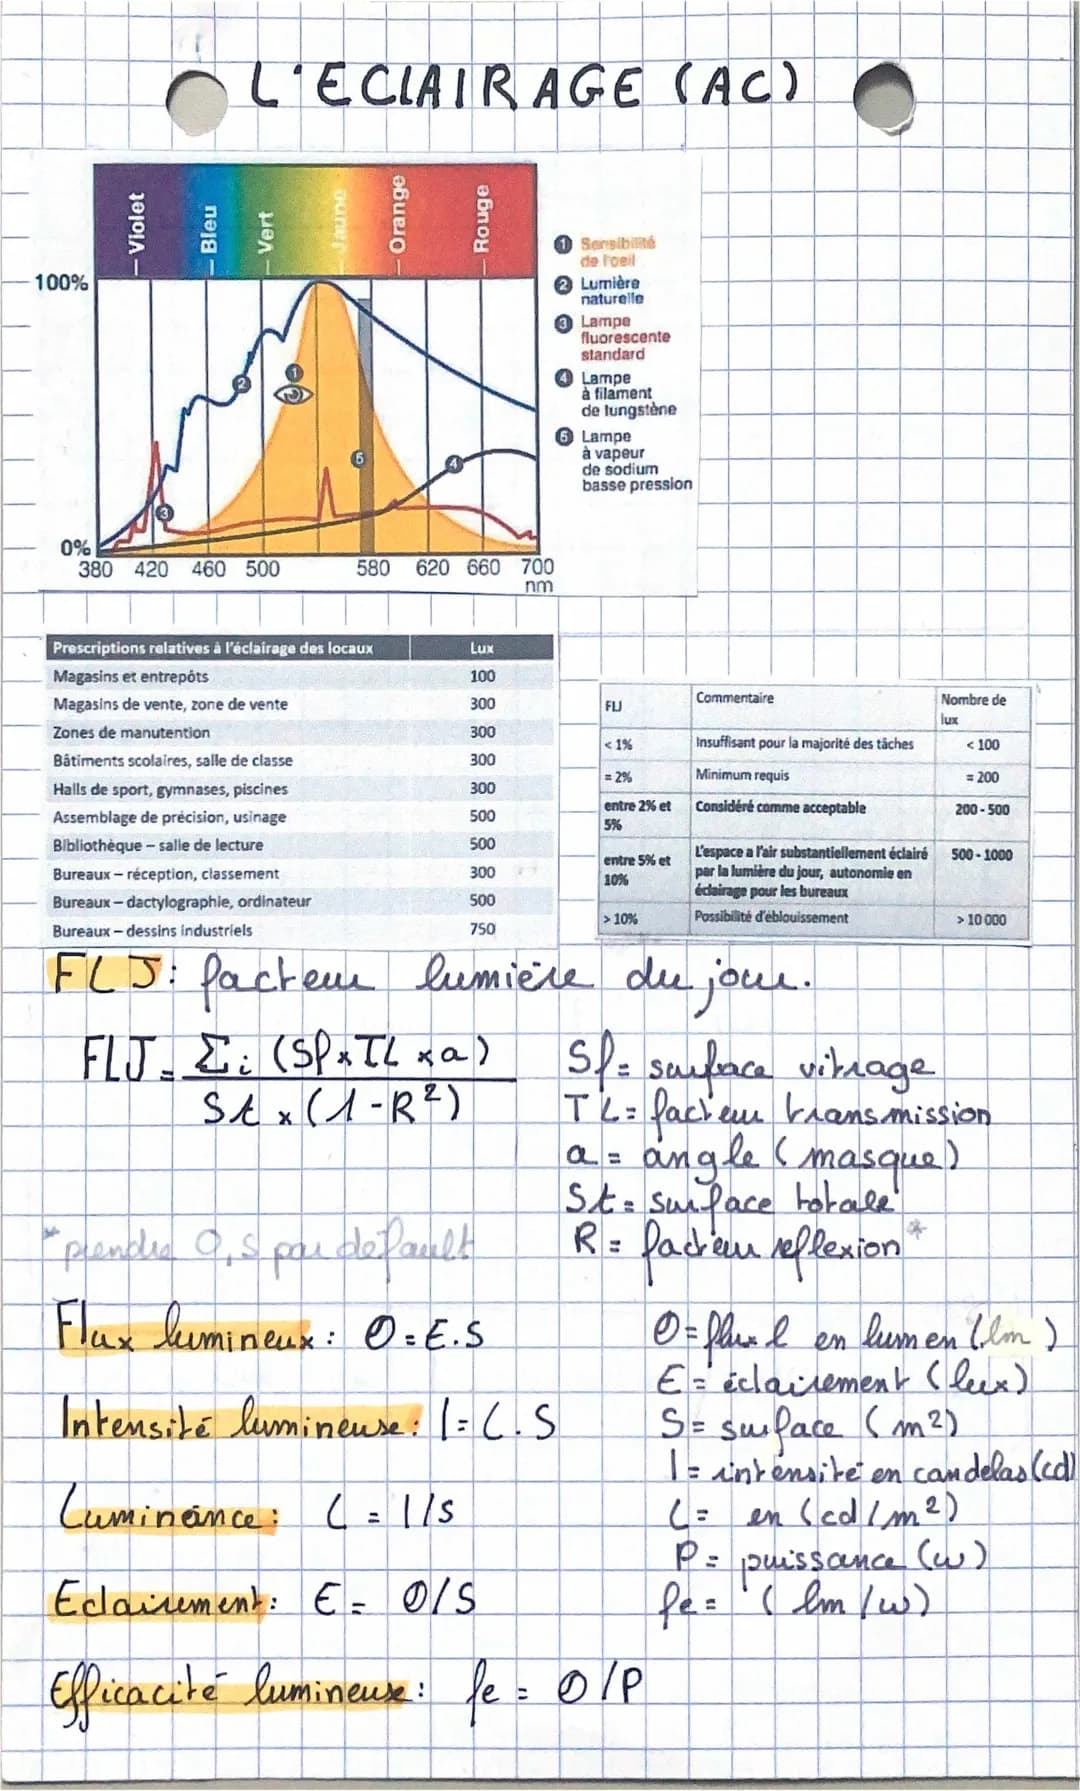 L'ECLAIRAGE (AC)
Violet
Bleu
Vert
Jaune
Orange
Rouge
100%
0%
380 420 460 500 580 620 660 700
nm
1 Sensibilité
de l'oeil
2 Lumière
naturelle
3 Lampe
fluorescente
standard
4 Lampe
à filament
de tungstène
5 Lampe
à vapeur
de sodium
basse pression
1
2
3
4
5
Prescriptions relatives à l'éclairage des locaux Lux
Magasins et entrepôts 100
Magasins de vente, zone de vente 300
Zones de manutention 300
Bâtiments scolaires, salle de classe 300
Halls de sport, gymnases, piscines 300
Assemblage de précision, usinage 500
Bibliothèque – salle de lecture 500
Bureaux – réception, classement 300
Bureaux – dactylographie, ordinateur 500
Bureaux – dessins industriels 750
FLJ Commentaire Nombre de
lux
< 1% Insuffisant pour la majorité des tâches < 100
= 2% Minimum requis = 200
entre 2% et Considéré comme acceptable 200 - 500
5%
entre 5% et L'espace a l'air substantiellement éclairé 500 - 1000
10% par la lumière du jour, autonomie en
éclairage pour les bureaux
> 10% Possibilité d'éblouissement > 10 000
FLJ: facteur lumière du jour.
FLJ = Σi (Sf x TL x a)
St x (1 - R²)
Sf = surface vitrage
TL = facteur transmission
a = angle (masque)
St = surface totale
R = facteur reflexion *
* prendre 0,5 par défault
Flux lumineux : O = E.S
Intensité lumineuse : I = L . S
Luminance : L = I/S
Eclairement : E = O/S
Efficacité lumineuse : fe = O/P
O = flux l en lumen (lm)
E = éclairement (lux)
S = surface (m²)
I = intensité en candelas (cd)
L = en (cd/m²)
P = puissance (w)
fe = (lm/w)